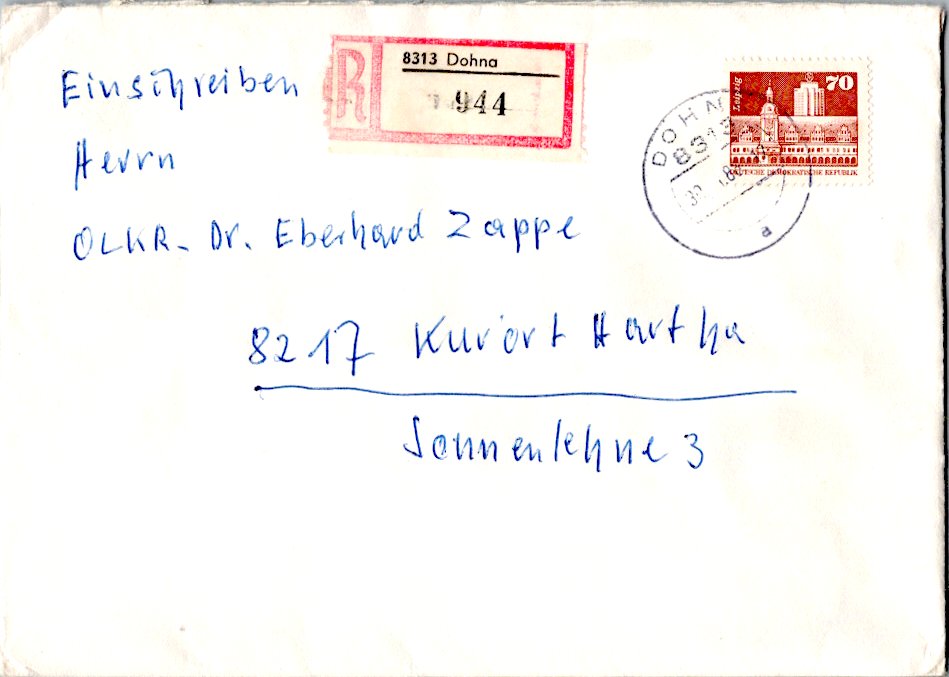 Einschreiben
R
8313 Dohna
944
Leipzig
70
DEUTSCHE DEMOKRATISCHE REPUBLIK
DOHNA
8313
a
Herrn
OLKR- Dr. Eberhard Zappe
8217 Kurort Hartha
Sonnenlehne 3